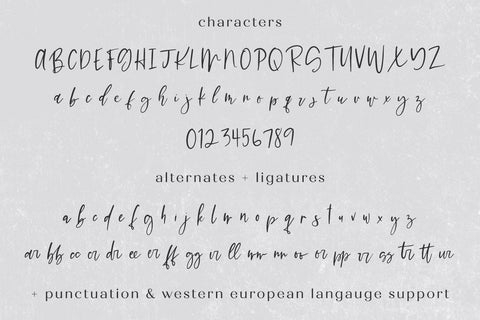 characters
ABCDEFGHIJKLMNOPQRSTUVWXYZ
a b c d e f g h i j k l m n o p q r s t u v w x y z
0123456789
alternates + ligatures
a b c d e f g h i j k l m n o p q r s t u v w x y z
ar bb cc cr dr ee er ff gg ir ll mm nn oo or pp rr ss tr tt ur
+ punctuation & western european langauge support